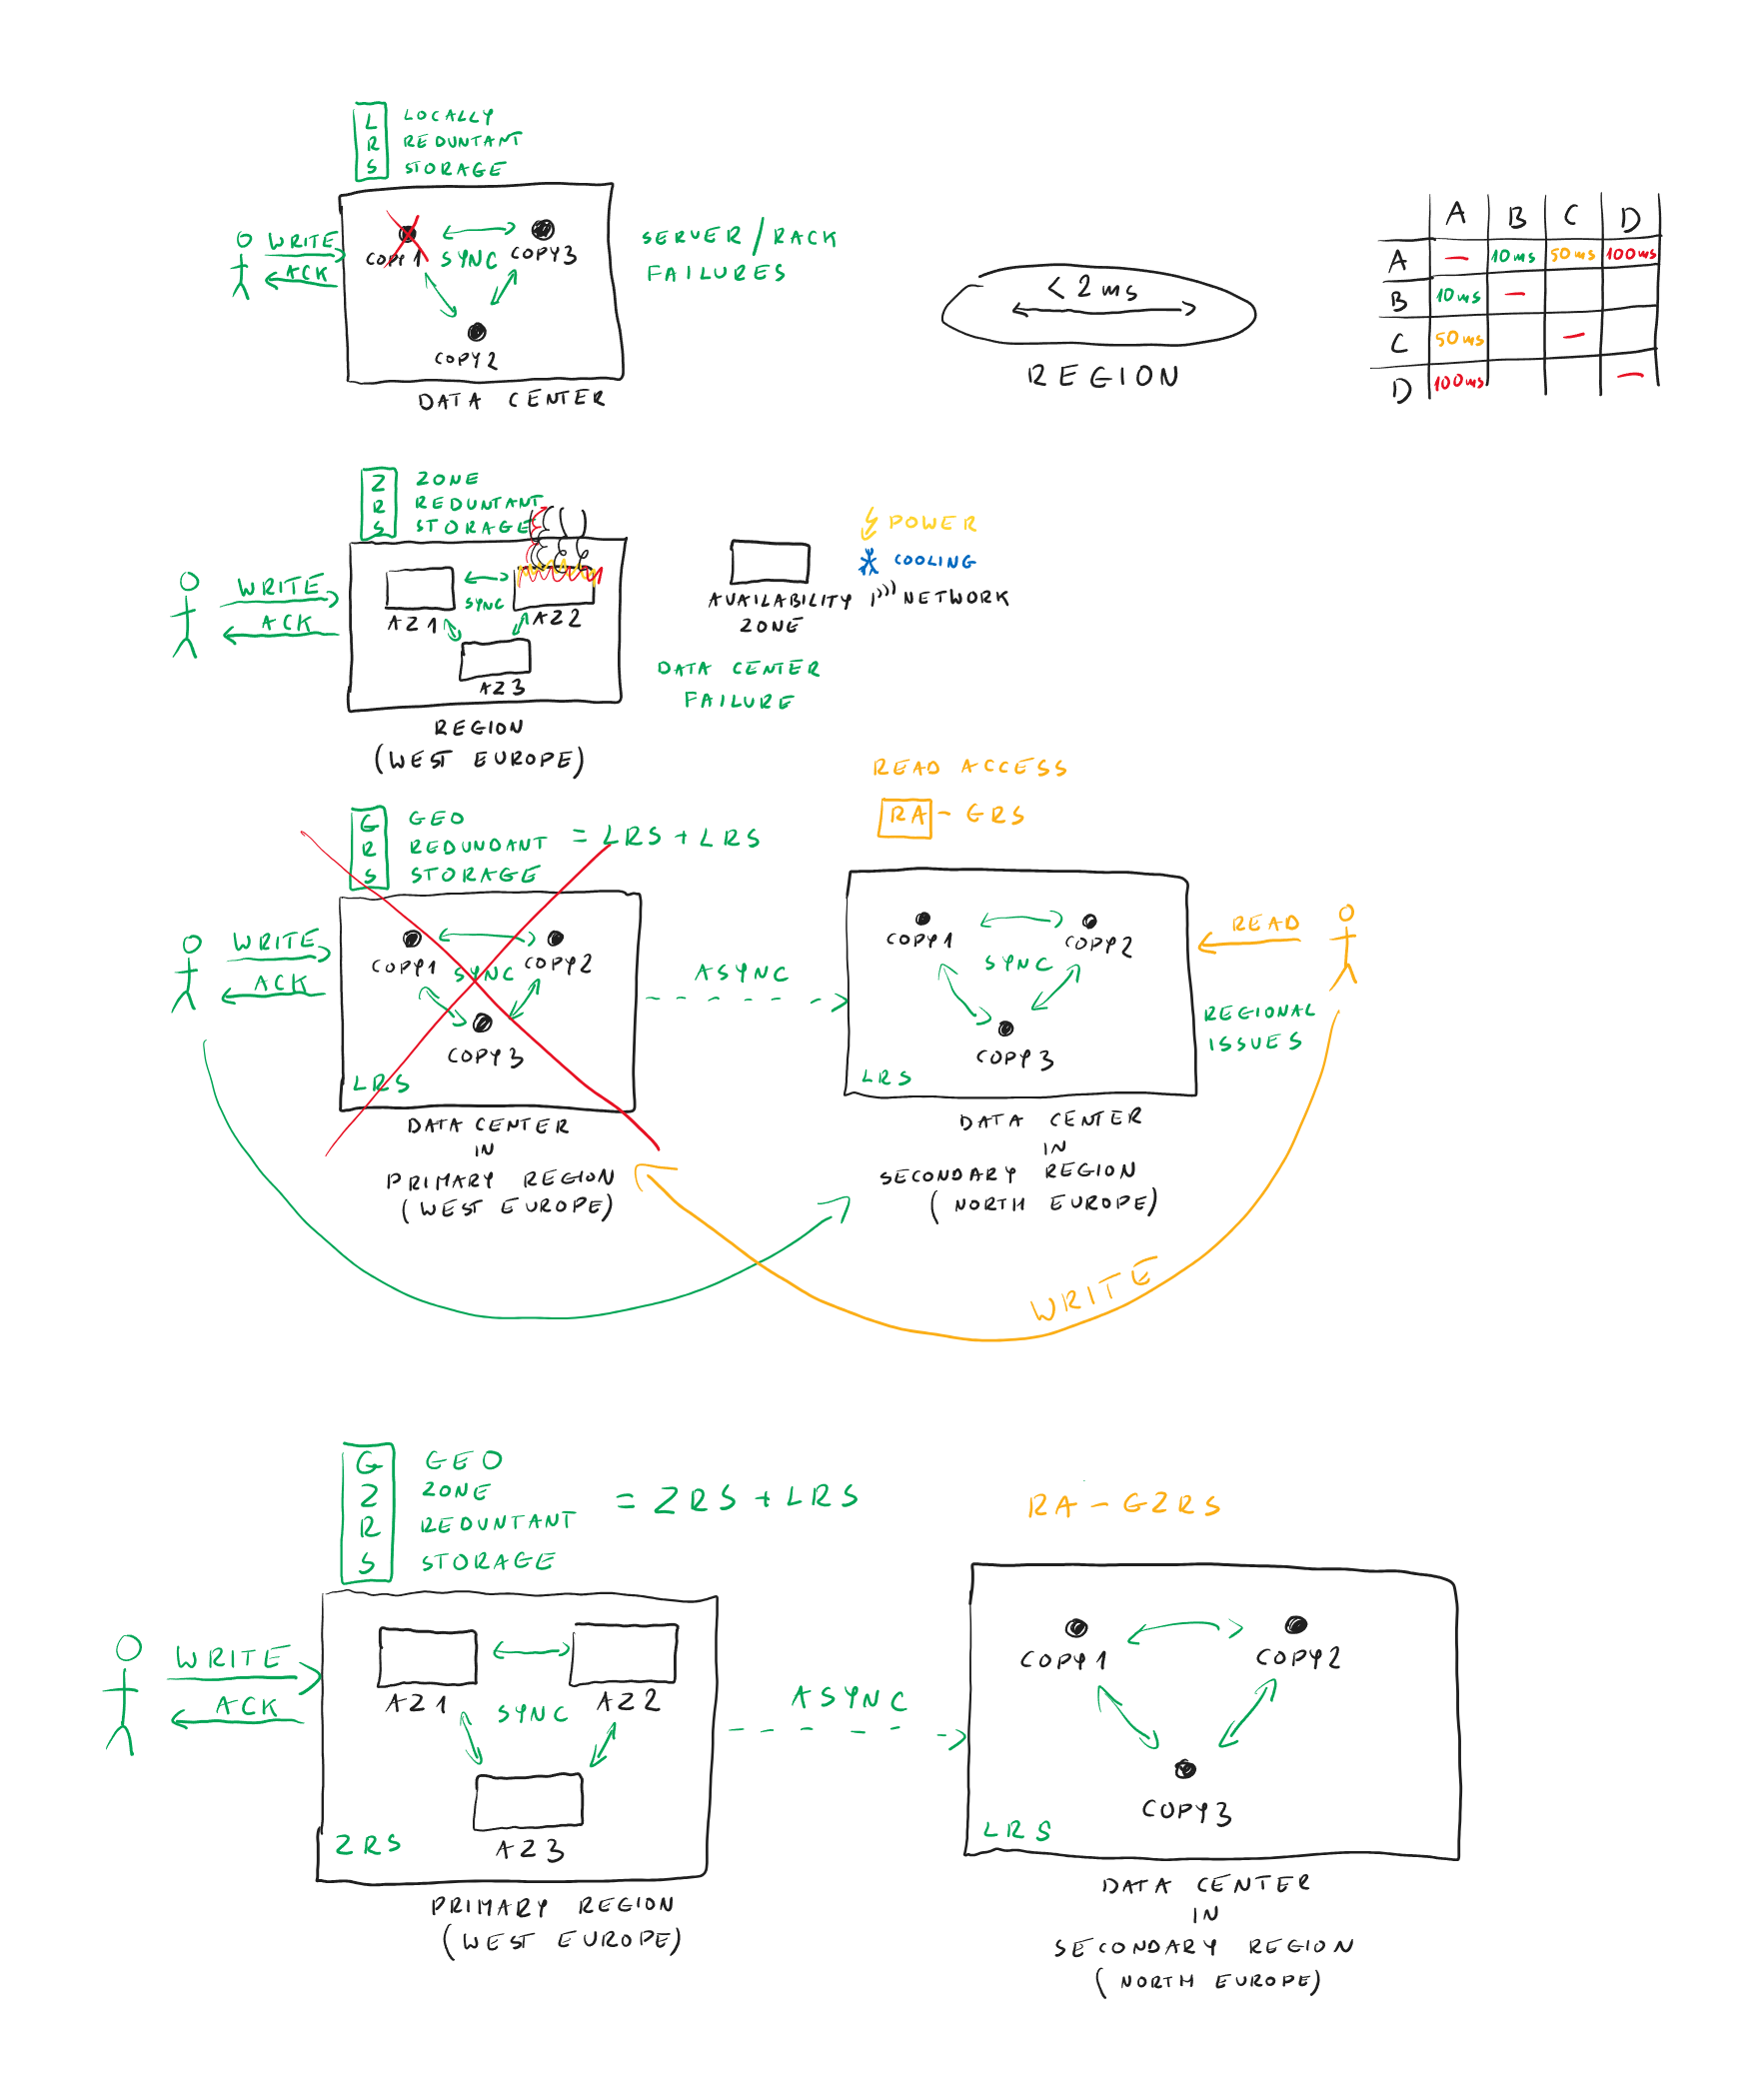 L LOCALLY
R REDUNTANT
S STORAGE
WRITE
ACK
COPY 1
SYNC
COPY3
COPY2
DATA CENTER
SERVER/RACK
FAILURES
< 2 ms
REGION
A B C D
A — 10ms 50ms 100ms
B 10ms —
C 50ms —
D 100ms —
Z ZONE
R REDUNTANT
S STORAGE
WRITE
ACK
AZ1
SYNC
AZ2
AZ3
REGION
(WEST EUROPE)
AVAILABILITY
ZONE
POWER
COOLING
NETWORK
DATA CENTER
FAILURE
G GEO
R REDUNDANT = LRS + LRS
S STORAGE
READ ACCESS
RA - GRS
WRITE
ACK
COPY1
SYNC
COPY2
COPY3
LRS
DATA CENTER
IN
PRIMARY REGION
(WEST EUROPE)
ASYNC
COPY1
SYNC
COPY2
COPY3
LRS
DATA CENTER
IN
SECONDARY REGION
(NORTH EUROPE)
READ
REGIONAL
ISSUES
WRITE
G GEO
Z ZONE
R REDUNTANT
S STORAGE
= ZRS + LRS
RA - GZRS
WRITE
ACK
AZ1
SYNC
AZ2
AZ3
ZRS
PRIMARY REGION
(WEST EUROPE)
ASYNC
COPY1
COPY2
COPY3
LRS
DATA CENTER
IN
SECONDARY REGION
(NORTH EUROPE)